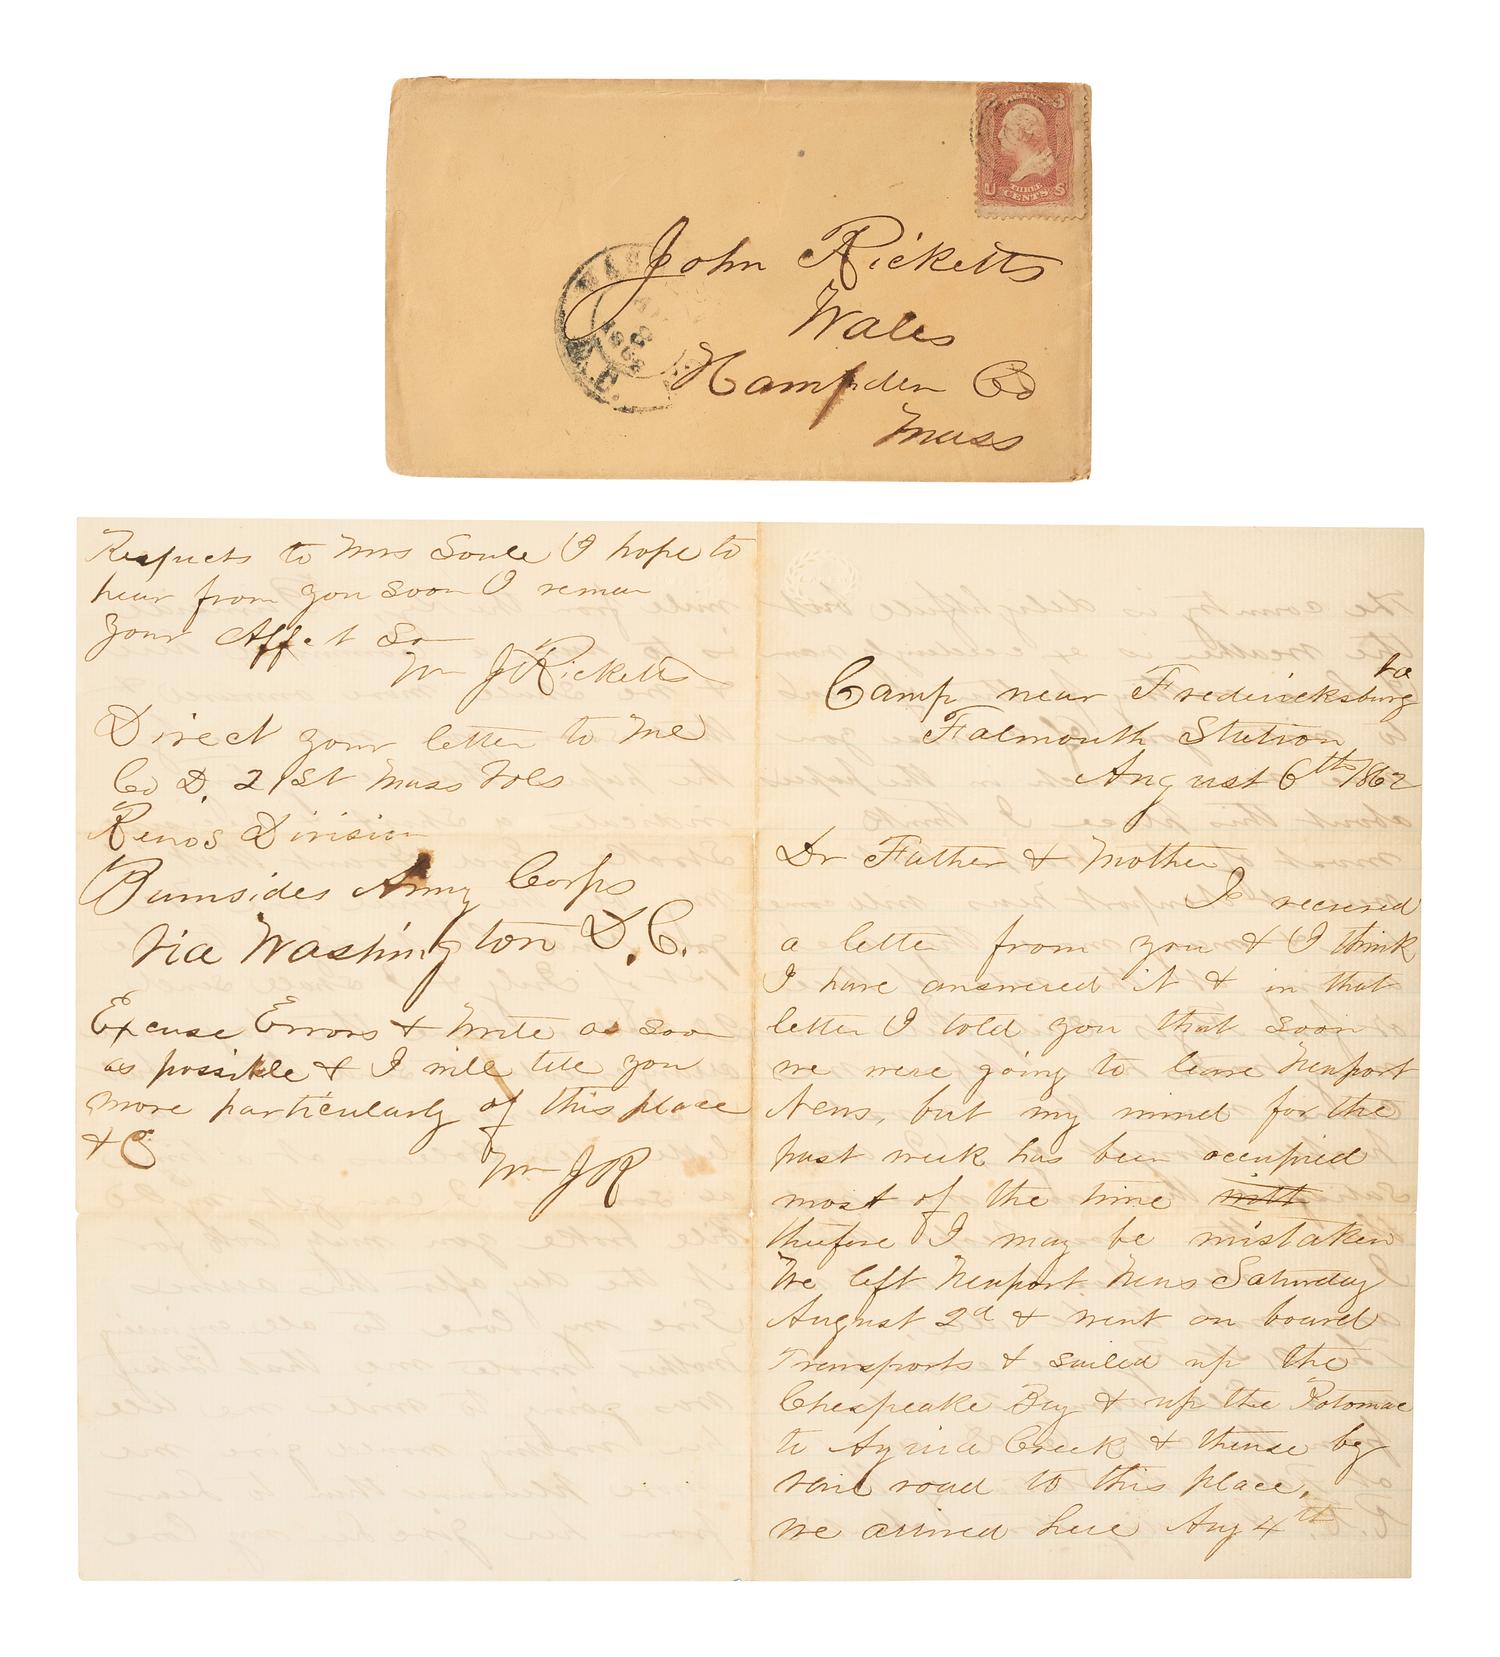 U.S. POSTAGE
3 3
U THREE CENTS S
John Ricketts
Wales
Hampden Co
Mass
Respects to Mrs Soule I hope to
hear from you soon I reman
your Affect So
Wm J Ricketts
Direct your letter to me
Co D. 21st Mass Vols
Renos Division
Burnsides Army Corps
Via Washington D.C.
Excuse Errors & write as soon
as possible & I will tele you
more particularly of this place
&C
Wm J R
Camp near Fredericksburg Va
Falmouth Station
August 6th 1862
Dr Father & Mother
I received
a letter from you & I think
I have answered it & in that
letter I told you that soon
we were going to leave Newport
News, but my mind for the
past week has been occupied
most of the time
therefore I may be mistaken
We left Newport News Saturday
August 2d & went on board
Transports & sailed up the
Chespeake Bay & up the Potomac
to Aquia Creek & thense by
rail road to this place,
we arrived here Aug 4th